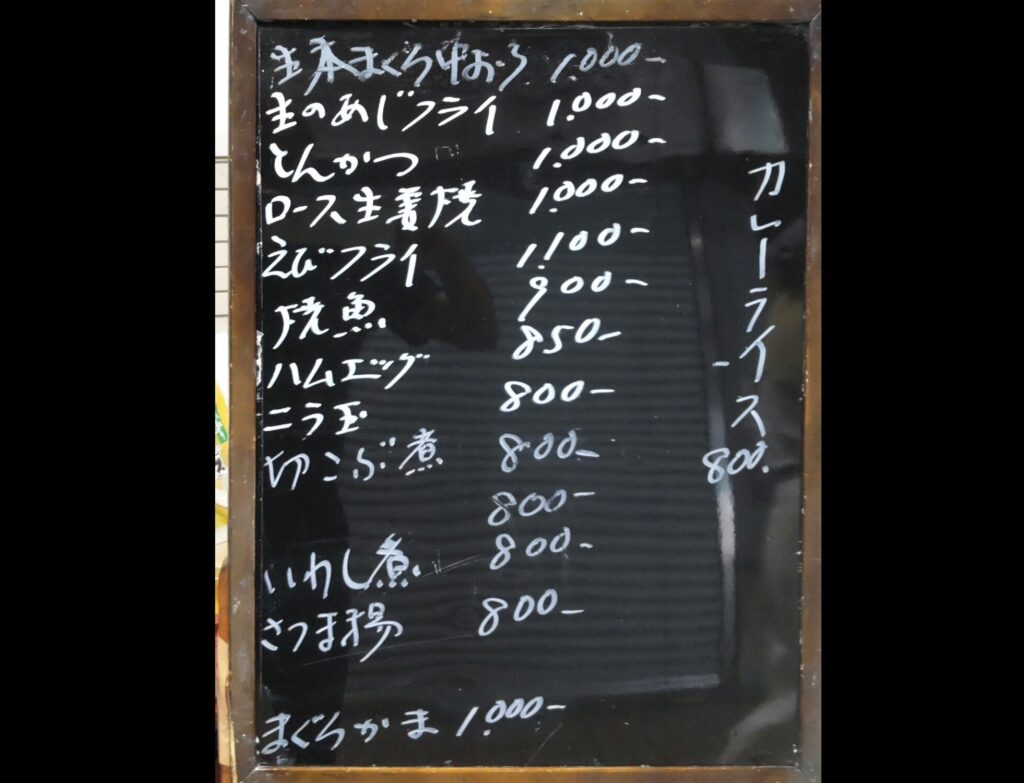 生本まぐろ中おろ 1.000-
生のあじフライ 1.000-
とんかつ 1.000-
ロース生姜焼 1.000-
えびフライ 1.100-
焼魚 900-
ハムエッグ 850-
ニラ玉 800-
切こぶ煮 800-
800-
いわし煮 800-
さつま揚 800-
まぐろかま 1.000-
カレーライス 800.